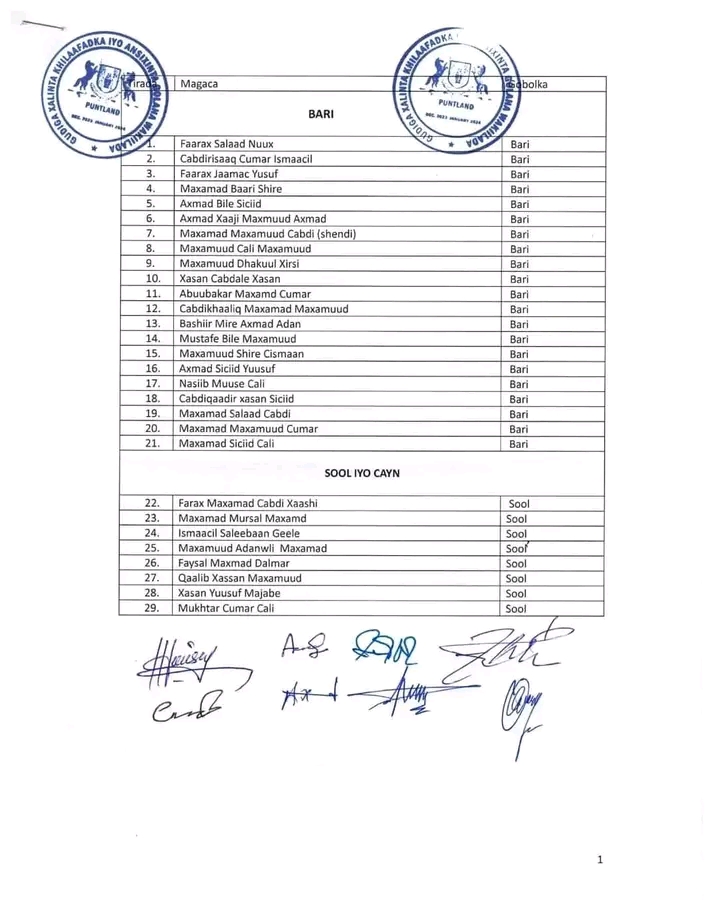 GUDIGA XALINTA KHILAAFADKA IYO ANSIXINTA GOLAHA WAKIILADA
PUNTLAND
DEC. 2023 JANUARY 2024
GUDIGA XALINTA KHILAAFADKA IXINTA GOLAHA WAKIILADA
PUNTLAND
DEC. 2023 JANUARY 2024
Tirada Magaca Gobolka
BARI
1. Faarax Salaad Nuux Bari
2. Cabdirisaaq Cumar Ismaacil Bari
3. Faarax Jaamac Yusuf Bari
4. Maxamad Baari Shire Bari
5. Axmad Bile Siciid Bari
6. Axmad Xaaji Maxmuud Axmad Bari
7. Maxamad Maxamuud Cabdi (shendi) Bari
8. Maxamuud Cali Maxamuud Bari
9. Maxamuud Dhakuul Xirsi Bari
10. Xasan Cabdale Xasan Bari
11. Abuubakar Maxamd Cumar Bari
12. Cabdikhaaliq Maxamad Maxamuud Bari
13. Bashiir Mire Axmad Adan Bari
14. Mustafe Bile Maxamuud Bari
15. Maxamuud Shire Cismaan Bari
16. Axmad Siciid Yuusuf Bari
17. Nasiib Muuse Cali Bari
18. Cabdiqaadir xasan Siciid Bari
19. Maxamad Salaad Cabdi Bari
20. Maxamad Maxamuud Cumar Bari
21. Maxamad Siciid Cali Bari
SOOL IYO CAYN
22. Farax Maxamad Cabdi Xaashi Sool
23. Maxamad Mursal Maxamd Sool
24. Ismaacil Saleebaan Geele Sool
25. Maxamuud Adanwli Maxamad Sool
26. Faysal Maxmad Dalmar Sool
27. Qaalib Xassan Maxamuud Sool
28. Xasan Yuusuf Majabe Sool
29. Mukhtar Cumar Cali Sool
1